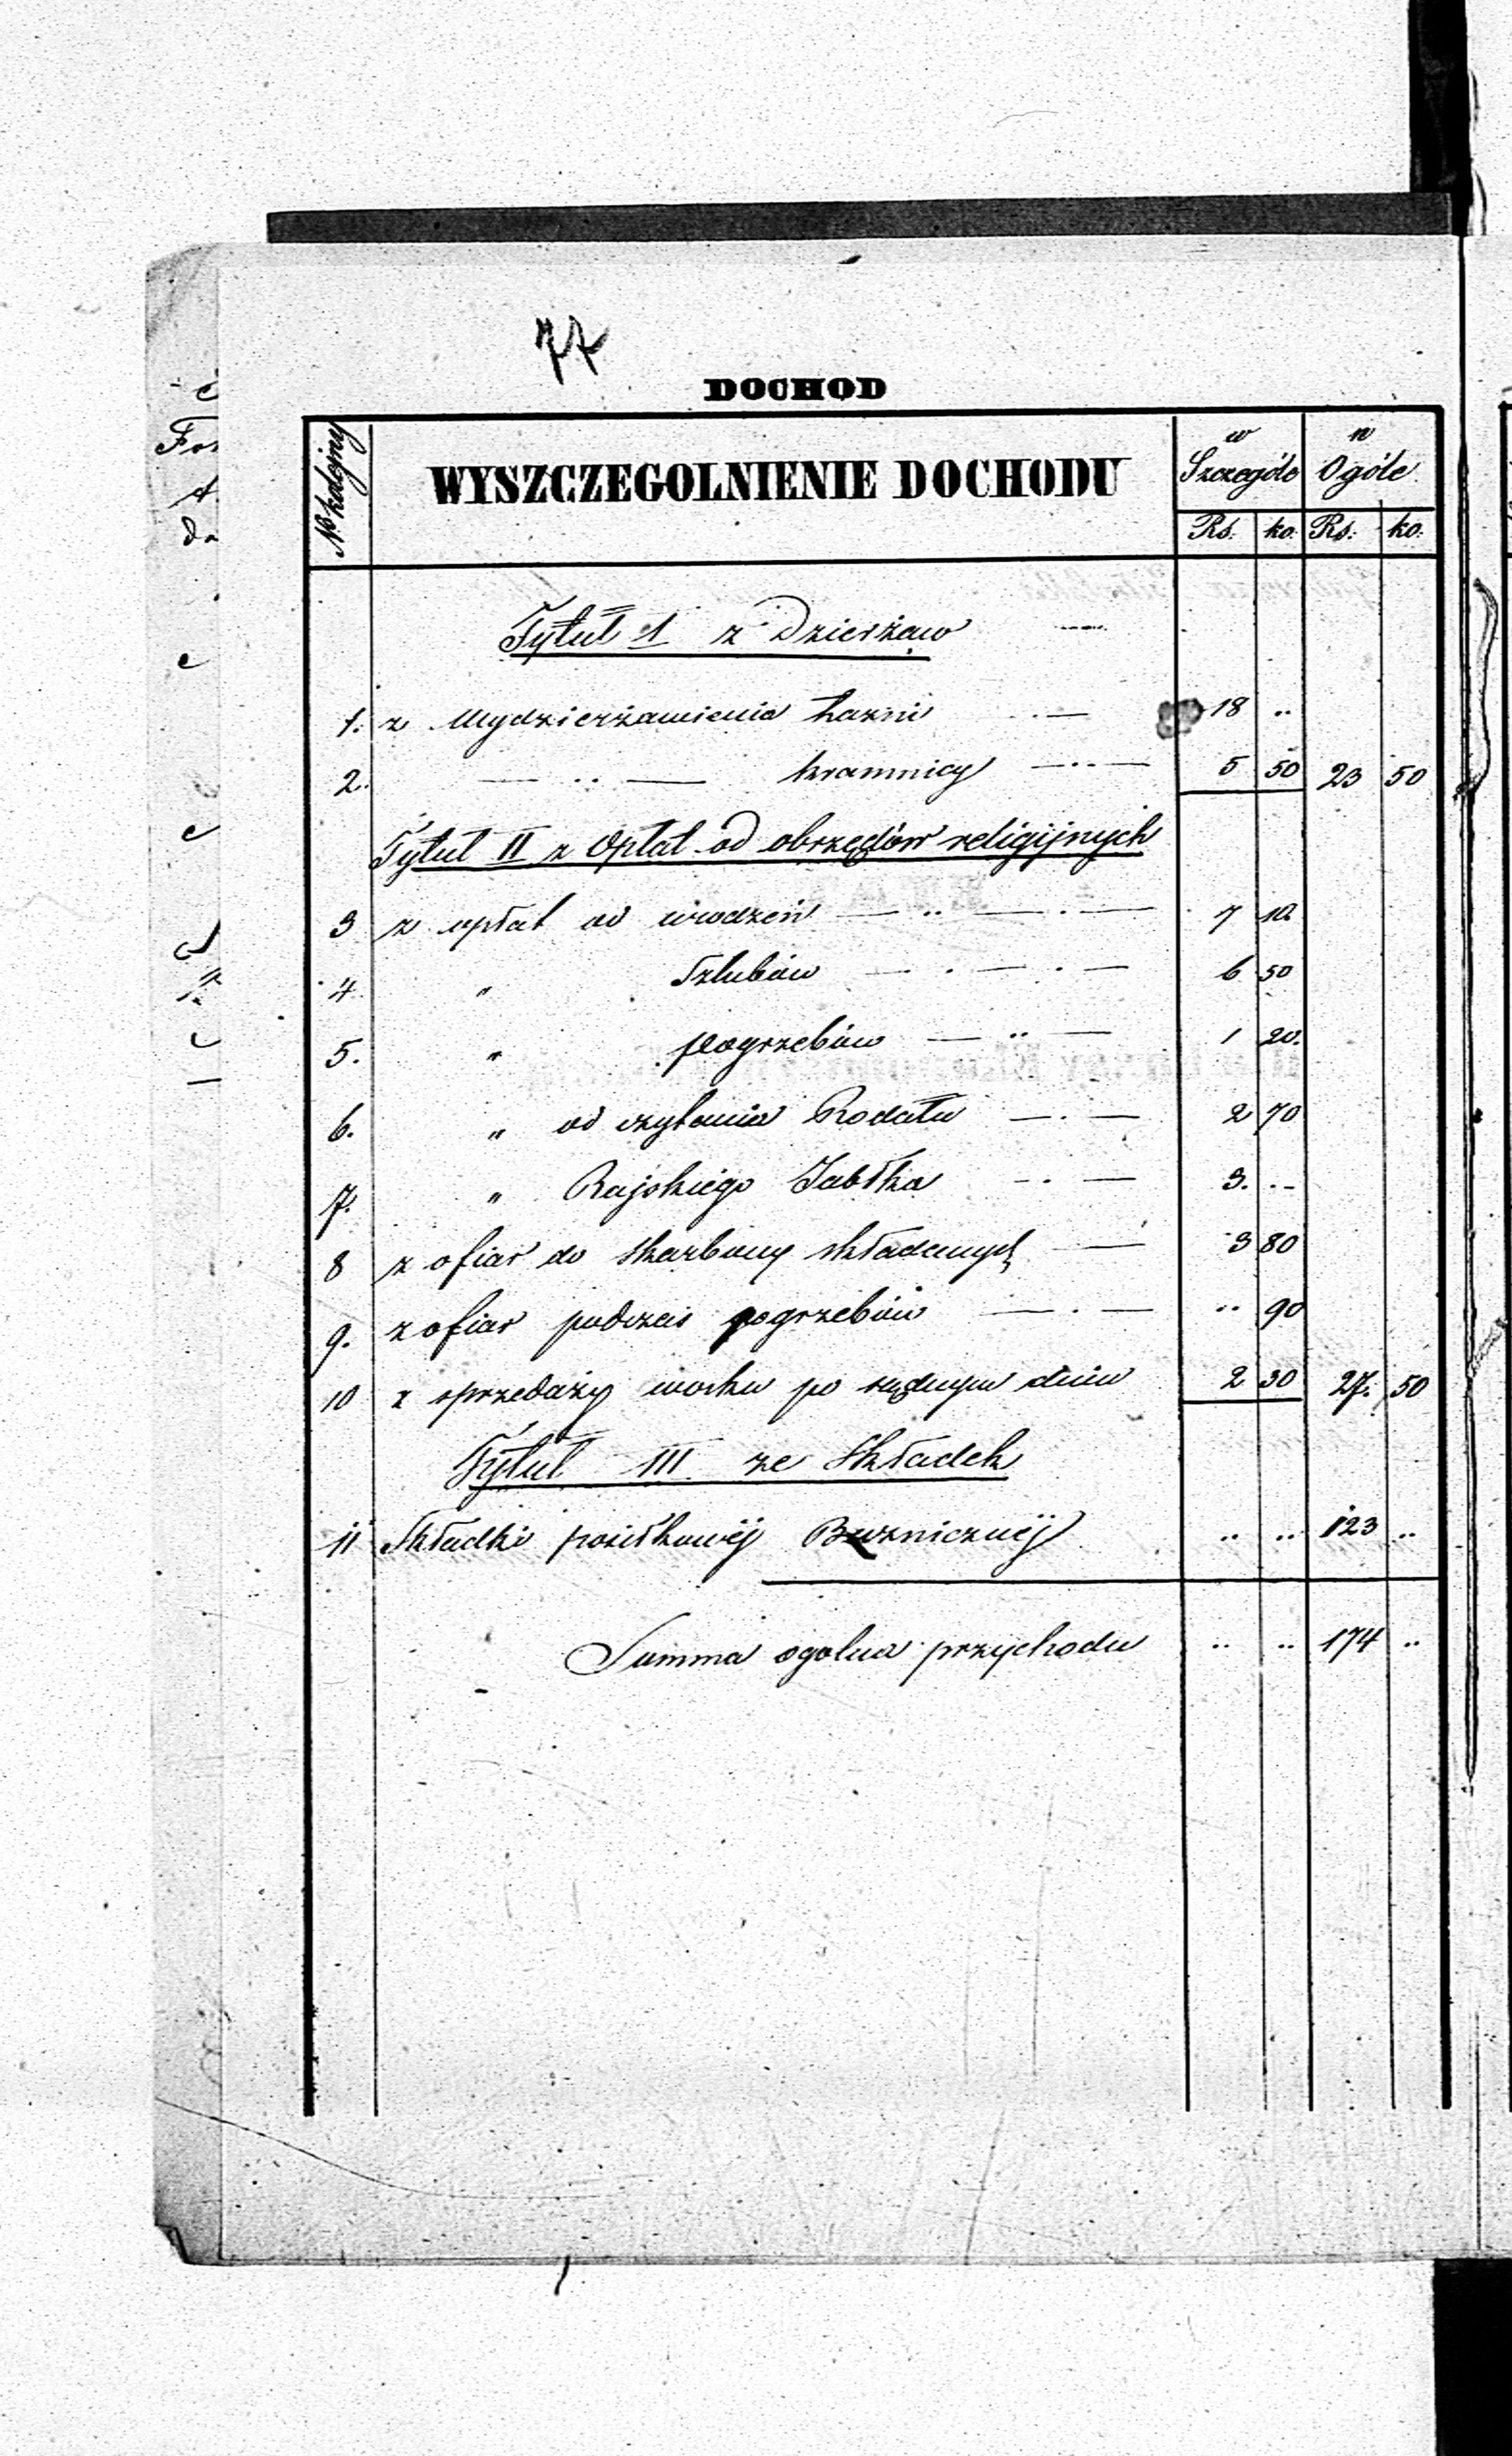 77
DOCHOD
№ kolejny WYSZCZEGOLNIENIE DOCHODU w Szczególe w Ogóle
Rs. ko. Rs. ko.
Tytuł I z Dzierżaw
1. z Wydzierżawienia Łazni 18 ..
2. — .. — kramnicy 5 50 23 50
Tytuł II z Opłat od obrzędów religijnych
3 z opłat od urodzeń 7 10
4 " Szlubów 6 50
5. " pogrzebów 1 20.
6. " od czytania Rodału 2 70
7. " Rajskiego Jabłka 3. ..
8 z ofiar do skarbony składanych 3 80
9. z ofiar podczas pogrzebów .. 90
10 z sprzedaży wosku po sądnym dniu 2 30 27. 50
Tytuł III ze Składek
11 Składki posiłkowéj Bużnicznéj .. .. 123 ..
Summa ogolna przychodu .. .. 174 ..